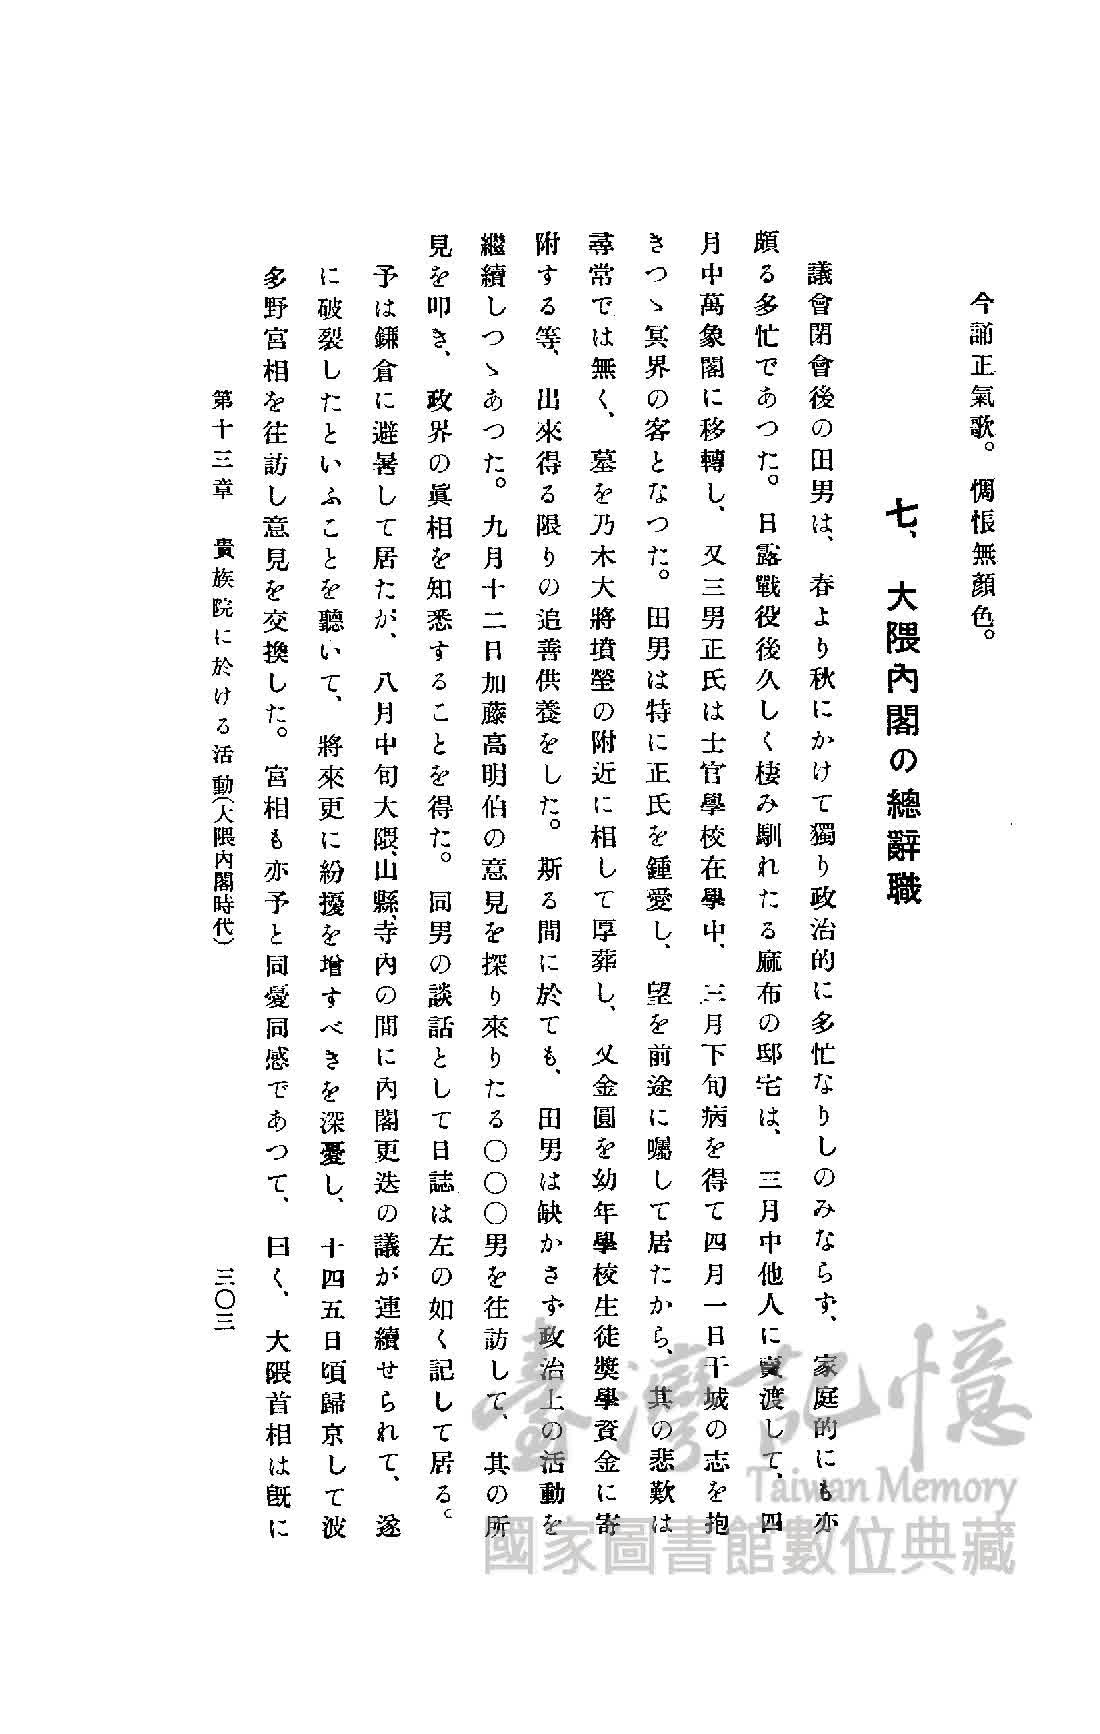 今誦正氣歌。惆悵無顏色。
七、大隈內閣の總辭職
議會閉會後の田男は、春より秋にかけて獨り政治的に多忙なりしのみならず、家庭的にも亦
頗る多忙であつた。日露戰役後久しく棲み馴れたる麻布の邸宅は、三月中他人に賣渡して、四
月中萬象閣に移轉し、又三男正氏は士官學校在學中、三月下旬病を得て四月一日干城の志を抱
きつゝ冥界の客となつた。田男は特に正氏を鍾愛し、望を前途に囑して居たから、其の悲歎は
尋常では無く、墓を乃木大將墳塋の附近に相して厚葬し、又金圓を幼年學校生徒奬學資金に寄
附する等、出來得る限りの追善供養をした。斯る間に於ても、田男は缺かさず政治上の活動を
繼續しつゝあつた。九月十二日加藤高明伯の意見を探り來りたる〇〇〇男を往訪して、其の所
見を叩き、政界の眞相を知悉することを得た。同男の談話として日誌は左の如く記して居る。
予は鎌倉に避暑して居たが、八月中旬大隈、山縣、寺內の間に內閣更迭の議が連續せられて、遂
に破裂したといふことを聽いて、將來更に紛擾を增すべきを深憂し、十四五日頃歸京して波
多野宮相を往訪し意見を交換した。宮相も亦予と同憂同感であつて、曰く、大隈首相は旣に
第十三章 貴族院に於ける活動(大隈內閣時代)
三〇三
臺灣記憶
Taiwan Memory
國家圖書館數位典藏